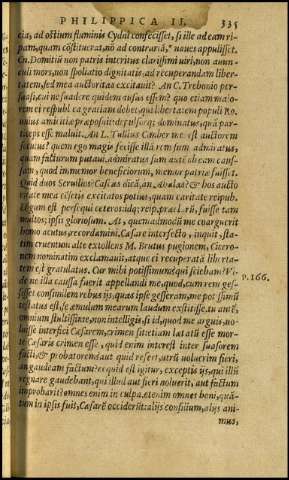 PHILIPPICA II. 335
cia, ad ostium fluminis Cydni confecisset, si ille ad eam ri-
pam, quam cōstituerat, nō ad contrariā, naues appulisset.
Cn. Domitiū non patris interitus clarissimi uiri, non auun-
culi mors, non spoliatio dignitatis, ad recuperandam liber-
tatem, sed mea auctoritas excitauit? An C. Trebonio per-
suasi, cui ne suadere quidem ausus essem? quo etiam maio-
rem ei respub. ca gratiam debet, qui libertatem populi Ro.
unius amicitiæ præposuit: depulsorq; dominatus, quā par-
ticeps esse maluit. An L. Tullius Cimber me est auctorem
secutus? quem ego magis fecisse illā rem sum admiratus,
quam facturum putaui. admiratus sum autē ob eam cau-
sam, quod immemor beneficiorum, memor patriæ fuisset.
Quid duos Seruilios? Cascas dicā, an Ahalas? & hos aucto
ritate mea censes excitatos potius, quam caritate reipub.
Longum est persequi ceteros: idq; reip. præclarū, fuisse tam
multos; ipsis gloriosum. At, quemadmodū me coarguerit
homo acutus, recordamini. Cæsare interfecto, inquit, sta-
tim cruentum alte extollens M. Brutus pugionem, Cicero-
nem nominatim exclamauit, atque ei recuperatā liberta-
tem est gratulatus. Cur mihi potissimum? qui sciebam? Vi-
P. 166.
de ne illa caussa fuerit appellandi mei, quod, cum rem ges-
sisset consimilem rebus ijs, quas ipse gesseram, me potissimū
testatus est, se æmulum mearum laudum extitisse. tu autē,
omnium stultissime, non intelligis, si id, quod me arguis, uo-
luisse interfici Cæsarem, crimen sit, etiam lætatū esse morte
Cæsaris crimen esse? quid enim interest inter suasorem
facti, & probatorem? aut quid refert, utrū uoluerim fieri,
an gaudeam factum? ecquis est igitur, exceptis ijs, qui illū
regnare gaudebant, qui illud aut fieri noluerit, aut factum
improbarit? omnes enim in culpa. etenim omnes boni, quā-
tum in ipsis fuit, Cæsarē occiderūt. alijs consilium, alijs ani-
mus,